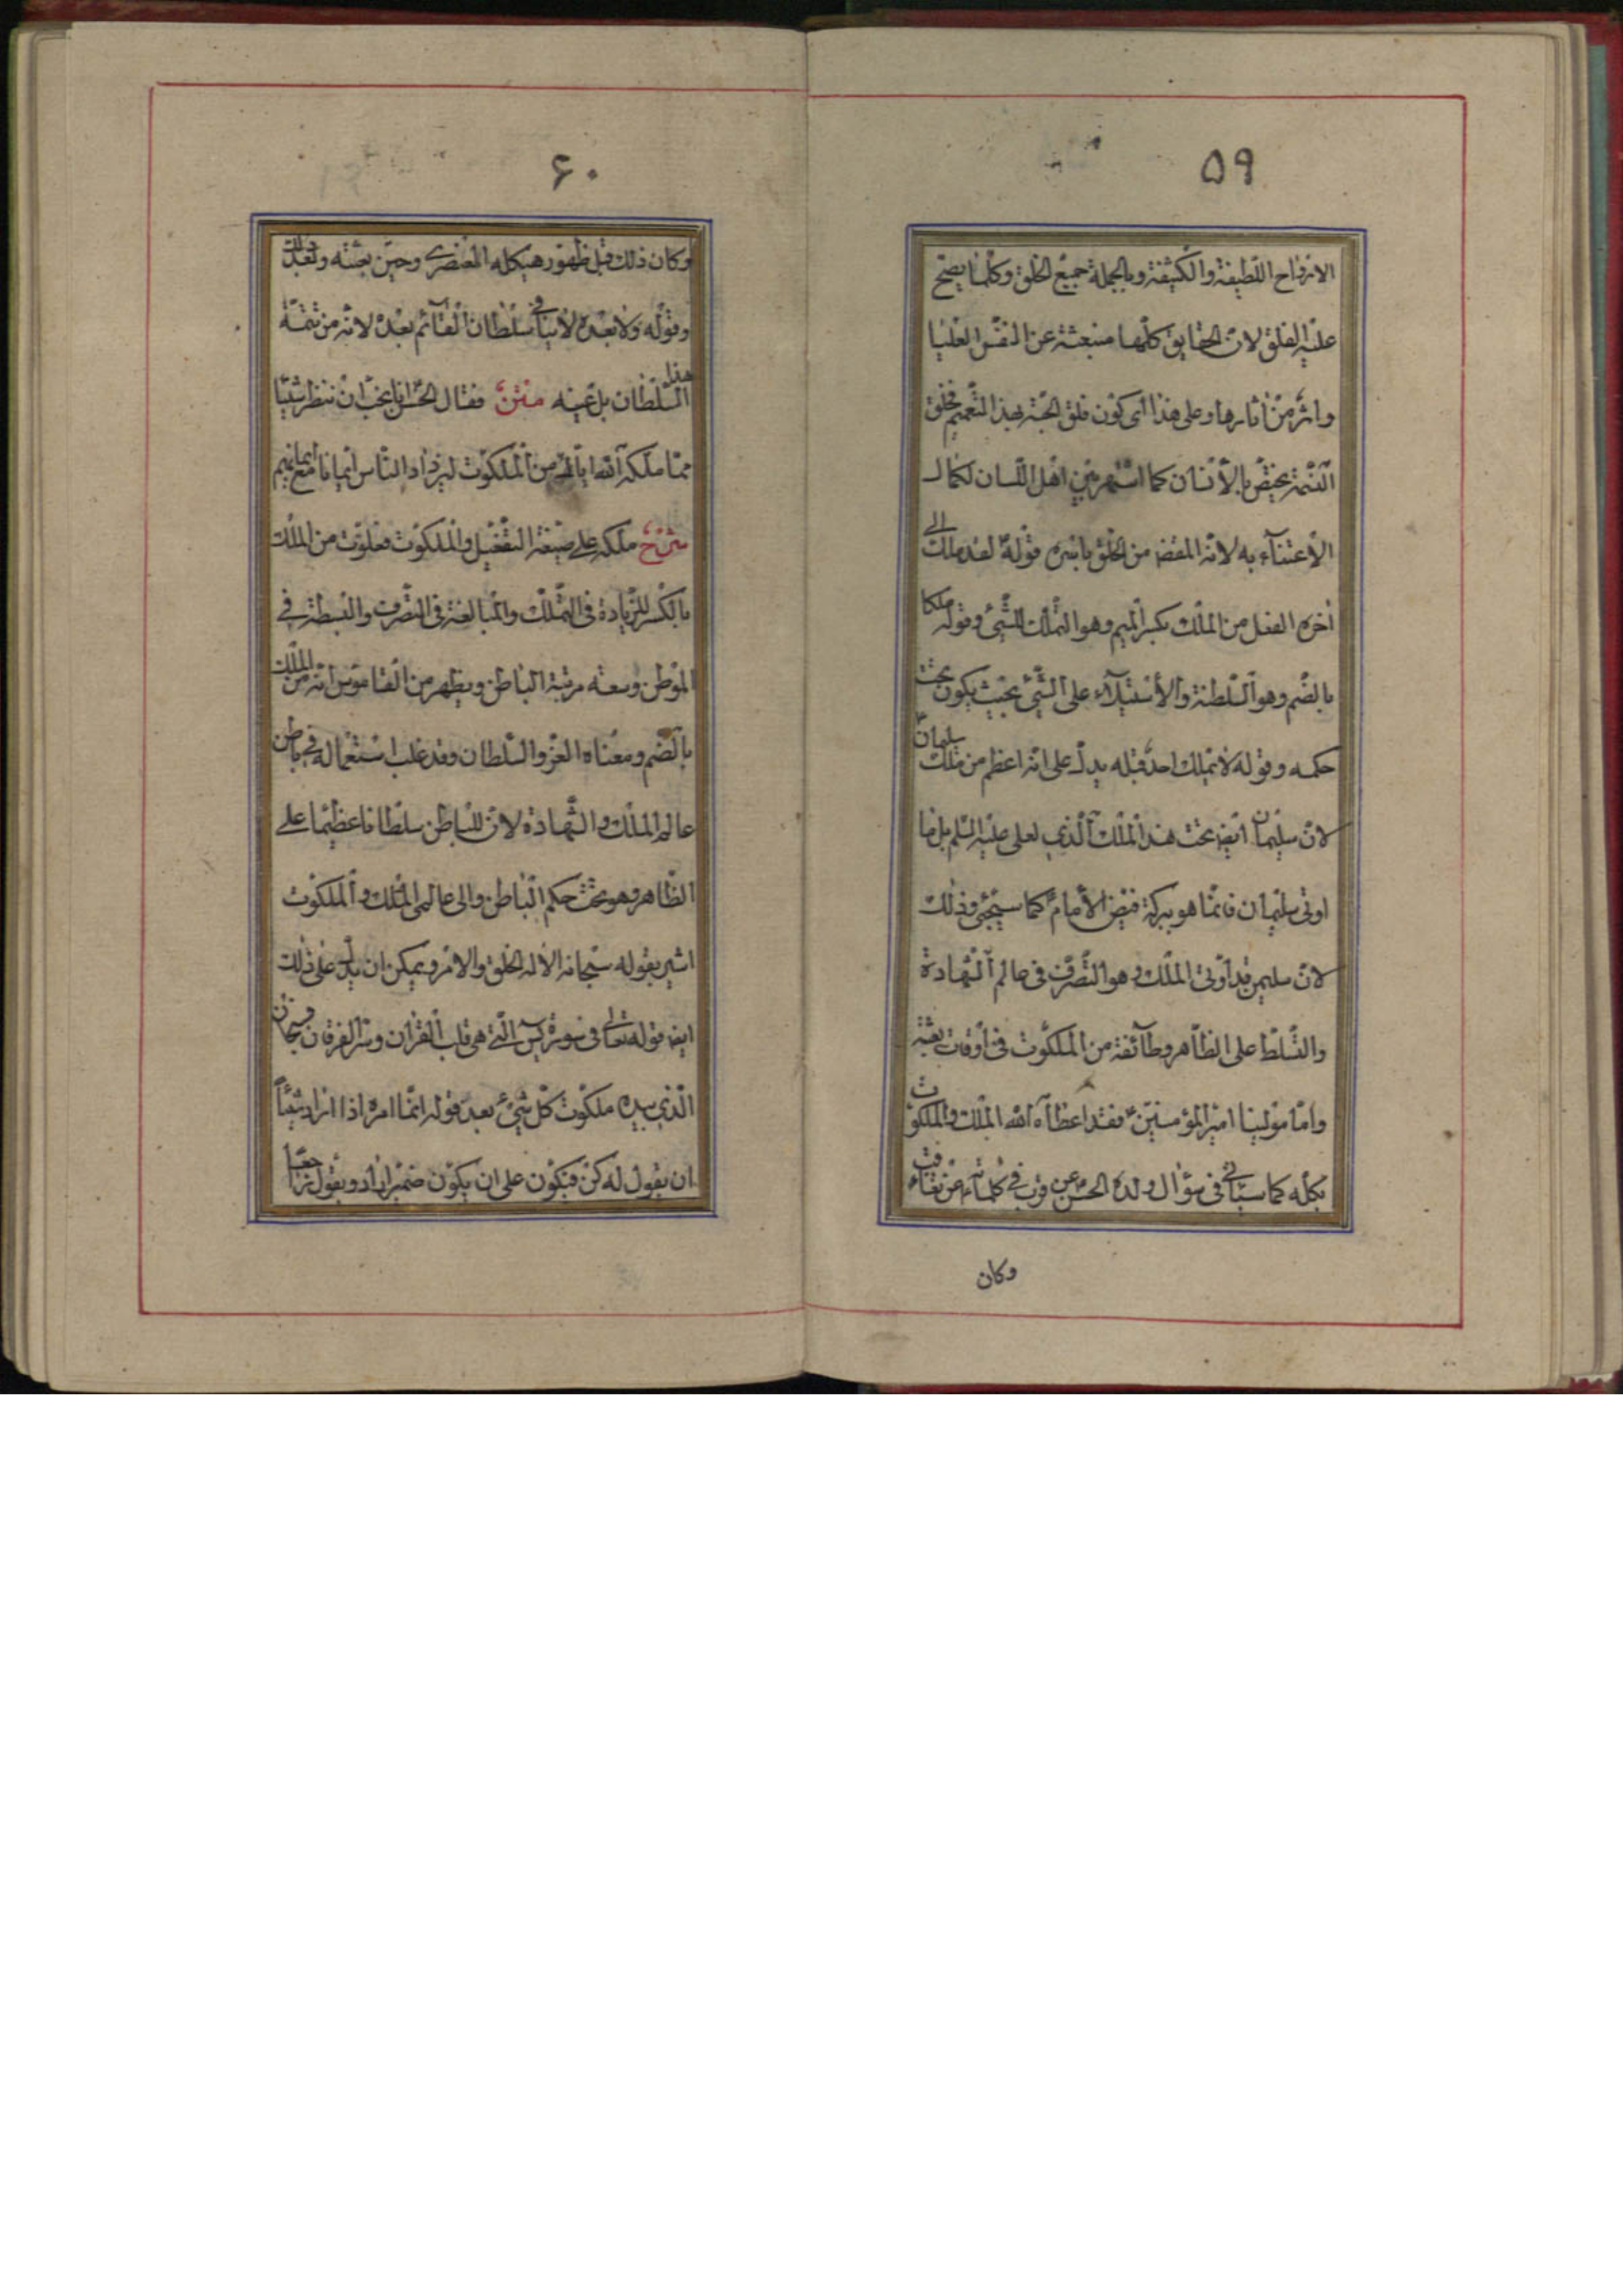 ٥٩
الارواح اللطيفة والكثيفة وبالجملة جميع الخلق وكلما يصح
عليه الفلق لان الحقايق كلّها منبعثة عن النفس العليا
واثر من اثارها وعلى هذا اى كون فلق الحبّة بهذا التعميم فخلق
النسمة يختصّ بالأنسان كما اشتهر بين اهل اللّسان لكمال
الأعتناء به لانّه المقصد من الخلق باسره قوله لقد ملك الى
اخره الفعل من الملك بكسر الميم وهو التملك للشّئ وقوله ملكا
بالضّم وهو السّلطنة والأستيلآء على الشّئ بحيث يكون تحت
حكمه وقوله لا يملك احد قبله يدلّ على انّه اعظم من ملك سليمان
لانّ سليمان ايضا تحت هذا الملك الّذى لعلى عليه السّلم بل ما
اوتى سليمان فانّما هو ببركة فيض الأمام كما سيجئ وذلك
لانّ سليمن قد اوتى الملك وهو التّصرّف فى عالم الشّهادة
والتّسلّط على الظّاهر وطآئفة من الملكوت فى اوقات بعثته
وامّا مولينا امير المؤمنين فقد اعطاه الله الملك والملكوت
بكلّه كما سيأتى فى سؤال ولده الحسن عن قرب فى كلماته عن ثقات
وكان
٦٠
وكان ذلك قبل ظهور هيكله العنصرى وحين بعثته وبعد ذلك
وقوله ولا بعده لا ينافى سلطان القآئم بعده لانّه من تتمّة
هذا السّلطان بل عينه متن فقال الحسن انا نحبّ ان ننظر شيئا
ممّا ملّكه الله ايّاك من الملكوت ليزداد النّاس ايمانا مع ايمانهم
شرح ملّكه على صيغة التّفعيل والملكوت فعلوت من الملك
بالكسر للزّيادة فى التملّك والمبالغة فى التصّرف والبسطة فى
الموطن وسعة مرتبة الباطن ويظهر من القاموس انّه من الملك
بالضّم ومعناه العزّ والسّلطان وقد غلب استعماله فى باطن
عالم الملك والشّهادة لانّ للباطن سلطانا عظيما على
الظّاهر وهو تحت حكم الباطن والى عالمى الملك والملكوت
اشير بقوله سبحانه الا له الخلق والامر ويمكن ان يدلّ على ذلك
ايضا قوله تعالى فى سورة يس الّتى هى قلب القران وسرّ الفرقان فسبحان
الّذى بيده ملكوت كلّ شئ بعد قوله انّما امره اذا اراد شيئاً
ان يقول له كن فيكون على ان يكون ضمير اراد ويقول